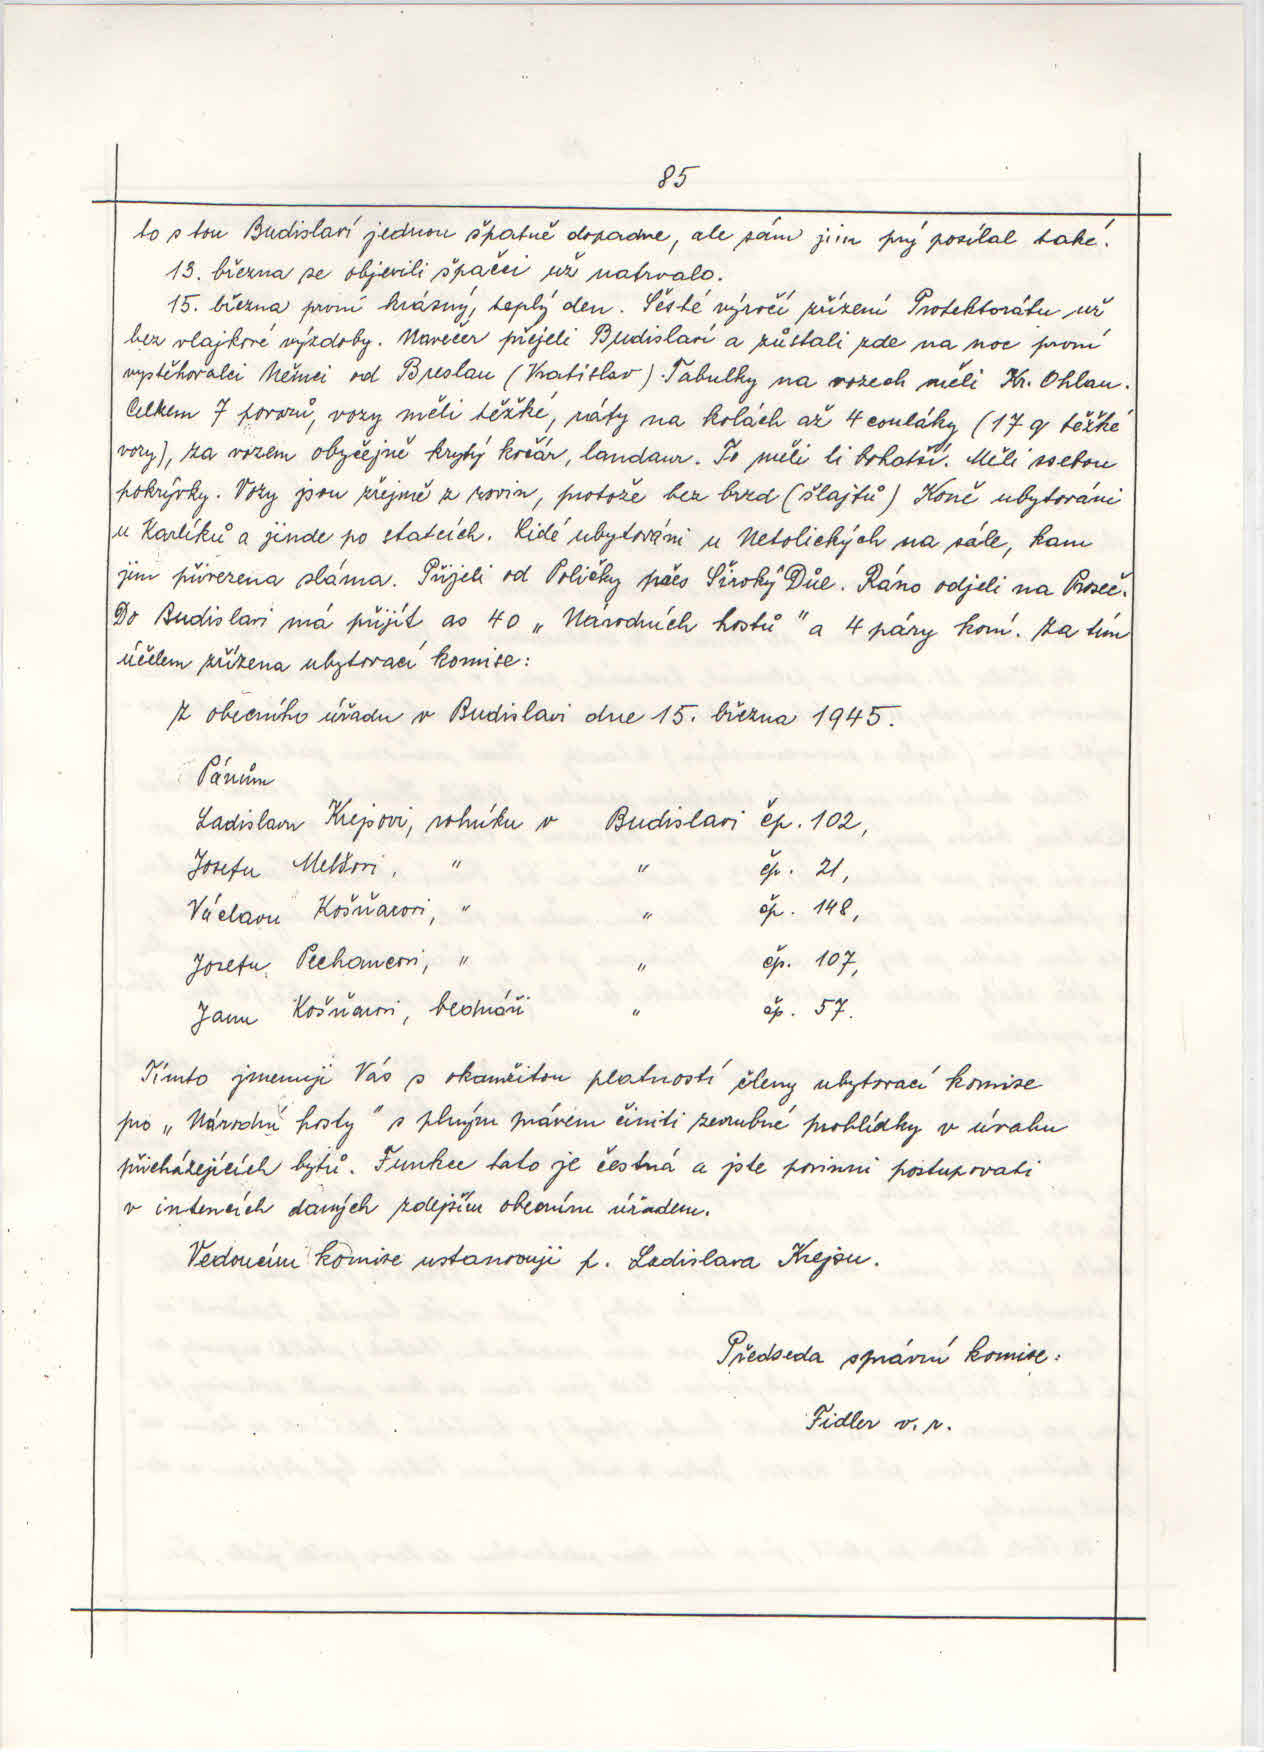 85
to s tou Budislaví jednou špatně dopadne, ale sám jim prý posílal také.
13. března se objevili špačci už natrvalo.
15. března první krásný, teplý den. Šesté výročí zřízení Protektorátu už
bez vlajkové výzdoby. Navečer přejeli Budislaví a zůstali zde na noc první
vystěhovalci Němci od Breslau (Vratislav). Tabulky na vozech měli Kr. Ohlau.
Celkem 7 povozů, vozy měli těžké, ráfy na kolách až 4 couláky (17 q těžké
vozy), za vozem obyčejně krytý kočár, landaur. To měli ti bohatší. Měli sebou
pokrývky. Vozy jsou zřejmě z rovin, protože bez brzd (šlajfů) Koně ubytováni
u Karlíků a jinde po statcích. Lidé ubytováni u Netolických na sále, kam
jim přivezena sláma. Přijeli od Poličky přes Široký Důl. Ráno odjeli na Proseč.
Do Budislavi má přijít as 40 „Národních hostů" a 4 páry koní. Za tím
účelem zřízena ubytovací komise:
Z obecního úřadu v Budislavi dne 15. března 1945.
Pánům
Ladislavu Krejsovi, rolníku v Budislavi čp. 102,
Josefu Melšovi, " " čp. 21,
Václavu Košňarovi, " " čp. 148,
Josefu Pechancovi, " " čp. 107,
Janu Košňarovi, bednáři " čp. 57.
Tímto jmenuji Vás s okamžitou platností členy ubytovací komise
pro „Národní hosty" s plným právem činiti zevrubné prohlídky v úvahu
přicházejících bytů. Funkce tato je čestná a jste povinni postupovati
v intencích daných zdejším obecním úřadem.
Vedoucím komise ustanovuji p. Ladislava Krejsu.
Předseda správní komise:
Fidler v. r.